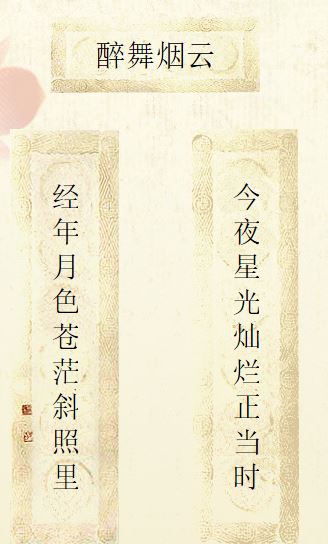 醉舞烟云
今夜星光灿烂正当时
经年月色苍茫斜照里